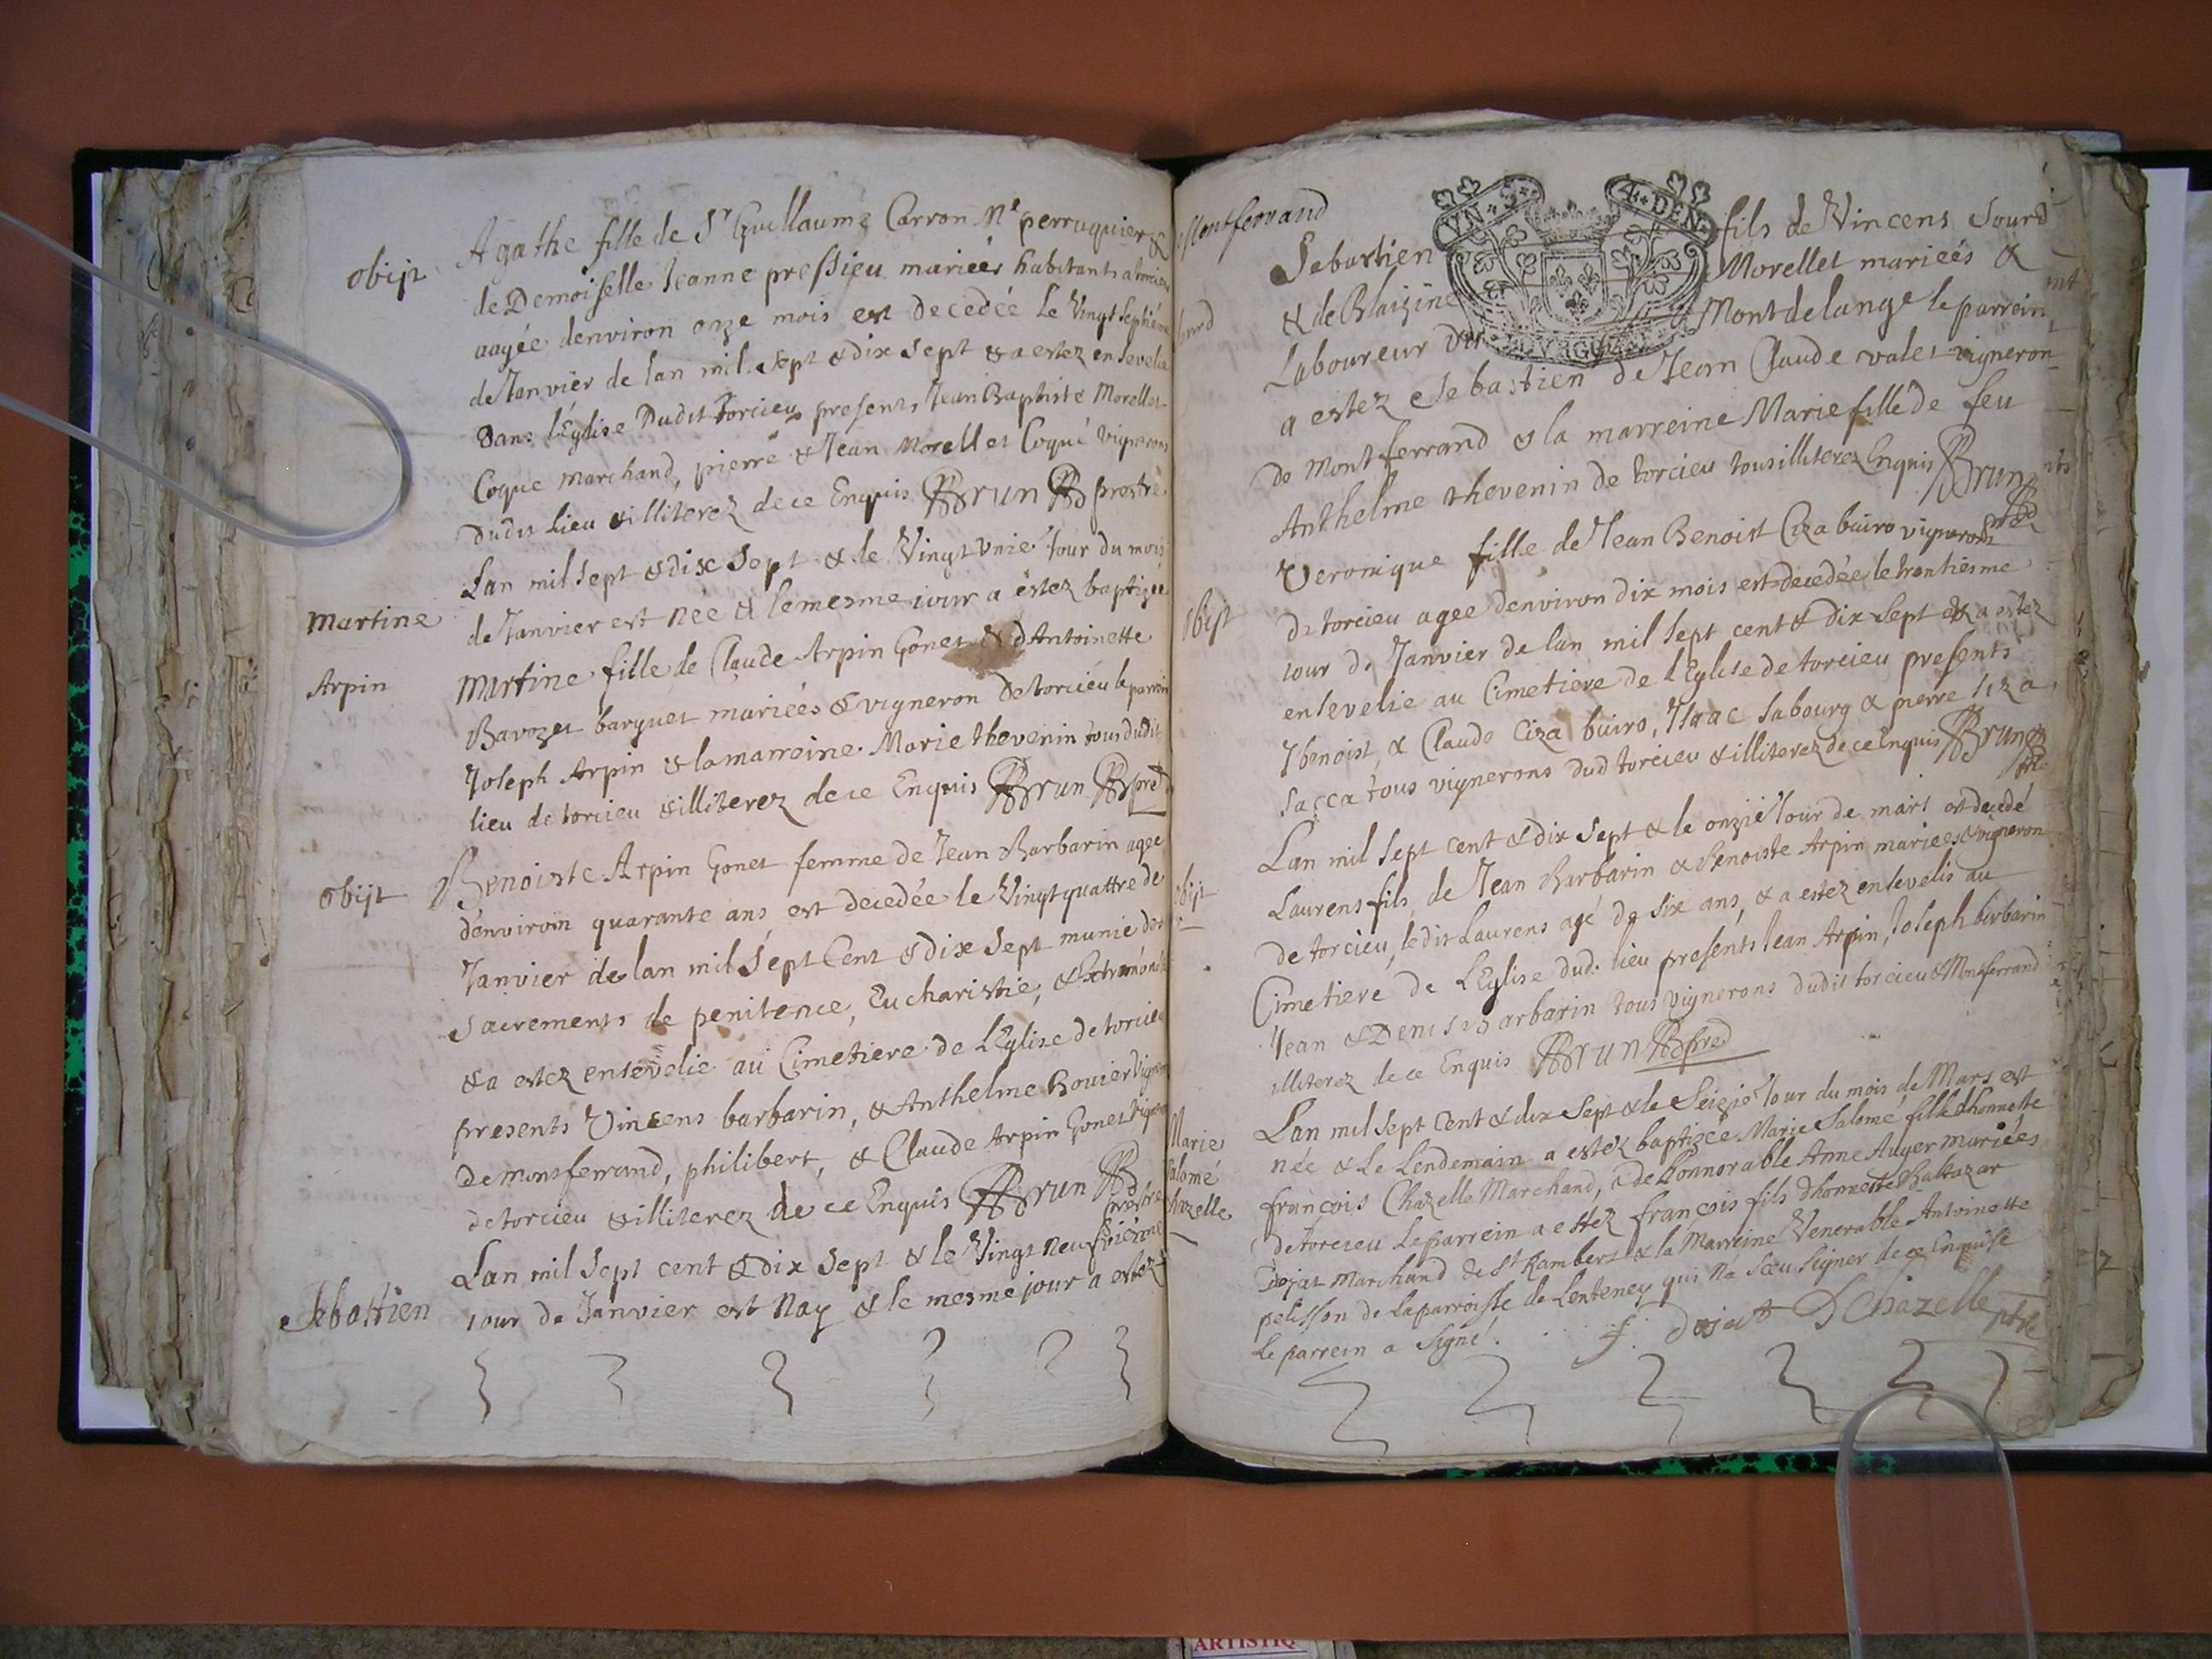 obijt
Agathe fille de Sr Guillaume Carron Mt perruquier &
de Demoiselle Jeanne pressieu mariées habitants a torcieu
aagée denviron onze mois est decedée le Vingt septiéme
de Janvier de lan mil sept & dix sept & a estez ensevelie
Dans l'Eglise Dudit Torcieu presents Jean Baptiste Morellet
Coque marchand, pierre & Jean Morellet Coqué Vignerons
Dudit Lieu & illiterez de ce Enquis Brun prestre
Lan mil sept & dix sept & le Vingt unié Jour du mois
de Janvier est née & le mesme iour a estez baptizée
Martine
Arpin
Martine fille de Claude Arpin Gonet & d'Antoinette
Bavozet barguet mariées & vigneron de torcieu le parrein
Joseph Arpin & la marreine Marie thevenin tous dudit
lieu de torcieu & illiterez de ce Enquis Brun pre
Obijt
Benoiste Arpin Gonet femme de Jean Barbarin agee
denviron quarante ans est decedée le Vingt quattre de
Janvier de lan mil sept Cent & dix sept munie des
sacrements de penitence, Eucharistie, & Extremonction
& a estez ensevelie au Cimetiere de L'Eglise de torcieu
presents Vincens barbarin, & Anthelme Bouier Vigneron
de montferrand, philibert, & Claude Arpin Gonet vigneron
de torcieu & illiterez de ce Enquis Brun prestre
Sebastien
Lan mil sept cent & dix sept & le Vingt neufviéme
iour de Janvier est nay & le mesme jour a estez
Montferrand
VN S. 4. DEN.
Sebastien fils de Vincens Sourd
& de Blaizine Morellet mariées &
Laboureur Montdelange le parrein
a estez Sebastien de Jean Claude valet vigneron
de Montferrand & la marreine Marie fille de feu
Anthelme thevenin de torcieu tous illiterez Enquis Brun
obijt
Veronique fille de Jean Benoist Ciza buiro vigneron
de torcieu agee denviron dix mois est decedée le trentiesme
iour de Janvier de lan mil sept cent & dix sept & a estez
ensevelie au Cimetiere de L'Eglise de torcieu presents
Jbenoist, & Claude Ciza buiro, Isaac Sabourg & pierre siza
sacca tous vignerons dud torcieu & illiterez de ce Enquis Brun
obijt
Lan mil sept cent & dix sept & le onzié Jour de mars est decedé
Laurens fils, de Jean Barbarin & Benoiste Arpin mariees & vigneron
de torcieu, ledit Laurens agé de six ans, & a estez ensevelis au
Cimetiere de L'Eglise dud. lieu presents Jean Arpin, Joseph barbarin
Jean & Denis barbarin tous vignerons dudit torcieu & Montferrand
illiterez de ce Enquis Brun
Marie
Salomé
Chazelle
Lan mil sept Cent & dix sept & le Seizié Jour du mois de Mars est
née & Le Lendemain a estez baptizée Marie Salomé fille dhonneste
françois Chazelle Marchand, & de honnorable Anne Auger mariées
de torcieu Le parrein a estez françois fils dhonneste Baltazar
Dejat marchand de St Rambert & la Marreine Venerable Antoinette
pelisson de la parroisse de Lenteney qui na sceu signer de ce Enquise
Le parrein a signé. f. dejat D Chazelle ptre
ARTISTIQ